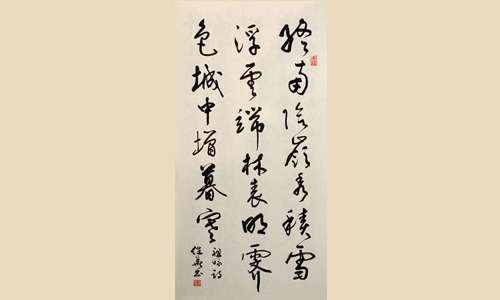 終南陰嶺秀積雪
浮雲端林表明霁
色城中增暮寒
祖咏詩